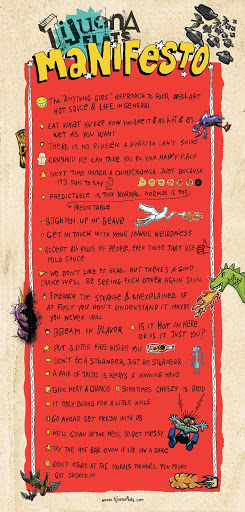 Tijuana
FLATS
MANIFESTO
THE "ANYTHING GOES" APPROACH TO FOOD, WALL ART
HOT SAUCE & LIFE IN GENERAL
EAT WHAT YOU LIKE HOW YOU LIKE IT & AS HOT & AS
WET AS YOU WANT
THERE IS NO PROBLEM A BURRITO CAN'T SOLVE
CRUSHED ICE CAN TAKE YOU TO YOUR HAPPY PLACE
NEXT TIME, ORDER A CHIMICHANGA JUST BECAUSE
IT'S FUN TO SAY
PREDICTABLE IS TOO NORMAL, NORMAL IS TOO
PREDICTABLE
LIGHTEN UP OR LEAVE
GET IN TOUCH WITH YOUR INNER WEIRDNESS
ACCEPT ALL KINDS OF PEOPLE, EVEN THOSE THAT USE
MILD SAUCE
WE DON'T LIKE TO BRAG, BUT THERE'S A GOOD
CHANCE WE'LL BE SEEING EACH OTHER AGAIN SOON.
EMBRACE THE STRANGE & UNEXPLAINED IF
AT FIRST YOU DON'T UNDERSTAND IT MAYBE
YOU NEVER WILL
DREAM IN FLAVOR
IS IT HOT IN HERE
OR IS IT JUST YOU?
PUT A LITTLE FIRE INSIDE YOU
DON'T BE A STRANGER, JUST BE STRANGER
A PAIR OF TACOS IS ALWAYS A WINNING HAND
GIVE HEAT A CHANCE
SOMETIMES CHEEZY IS GOOD
IT ONLY BURNS FOR A LITTLE WHILE
GO AHEAD GET FRESH WITH US
WE'LL CLEAN UP THE MESS, SO GET MESSY
TRY THE HOT BAR EVEN IF IT'S ON A DARE
DON'T STARE AT THE MURALS TOO HARD, YOU MIGHT
GET SUCKED IN
www.tijuanaflats.com